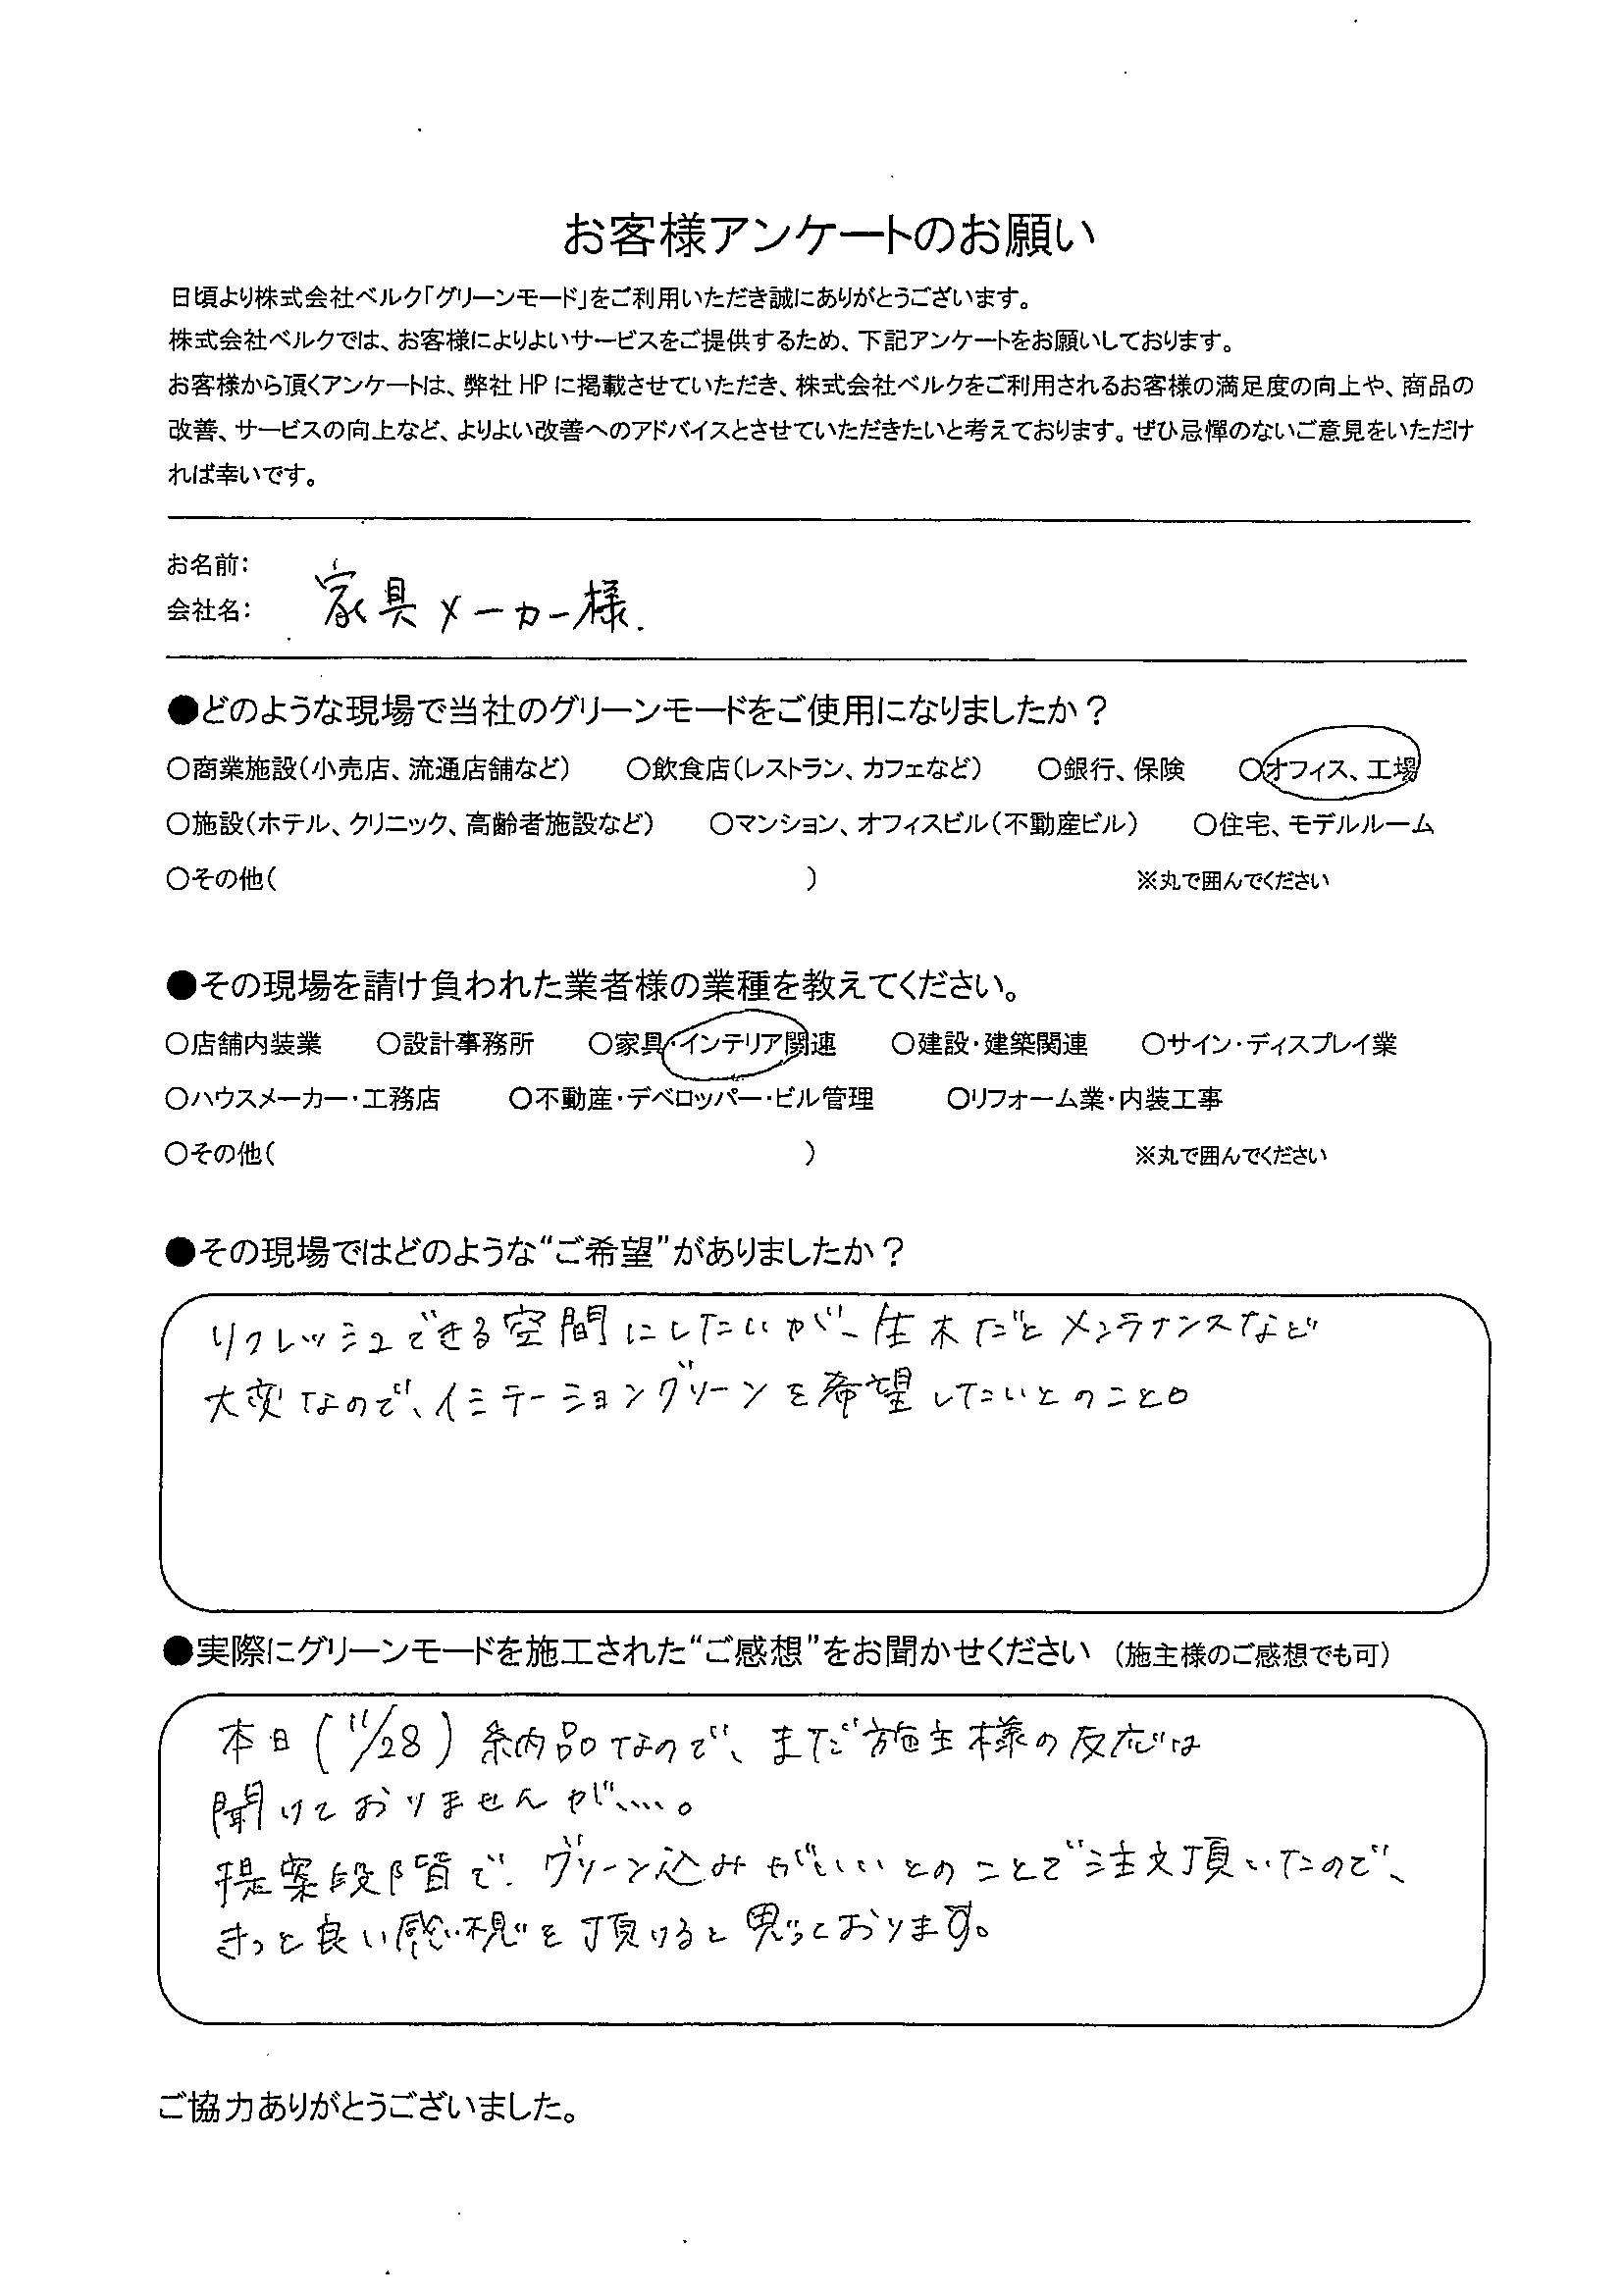 お客様アンケートのお願い
日頃より株式会社ベルク「グリーンモード」をご利用いただき誠にありがとうございます。
株式会社ベルクでは、お客様によりよいサービスをご提供するため、下記アンケートをお願いしております。
お客様から頂くアンケートは、弊社 HP に掲載させていただき、株式会社ベルクをご利用されるお客様の満足度の向上や、商品の
改善、サービスの向上など、よりよい改善へのアドバイスとさせていただきたいと考えております。ぜひ忌憚のないご意見をいただけ
れば幸いです。
お名前:
会社名: 家具メーカー様.
●どのような現場で当社のグリーンモードをご使用になりましたか？
○商業施設（小売店、流通店舗など） ○飲食店（レストラン、カフェなど） ○銀行、保険 ○オフィス、工場
○施設（ホテル、クリニック、高齢者施設など） ○マンション、オフィスビル（不動産ビル） ○住宅、モデルルーム
○その他（ ） ※丸で囲んでください
●その現場を請け負われた業者様の業種を教えてください。
○店舗内装業 ○設計事務所 ○家具・インテリア関連 ○建設・建築関連 ○サイン・ディスプレイ業
○ハウスメーカー・工務店 ○不動産・デベロッパー・ビル管理 ○リフォーム業・内装工事
○その他（ ） ※丸で囲んでください
●その現場ではどのような“ご希望”がありましたか？
リフレッシュできる空間にしたいが、生木だとメンテナンスなど
大変なので、イミテーショングリーンを希望したいとのこと。
●実際にグリーンモードを施工された“ご感想”をお聞かせください （施主様のご感想でも可）
本日（11/28）納品なので、まだ施主様の反応は
聞けておりませんが……。
提案段階で、グリーン込みがいいとのことでご注文頂いたので、
きっと良い感想を頂けると思っております。
ご協力ありがとうございました。